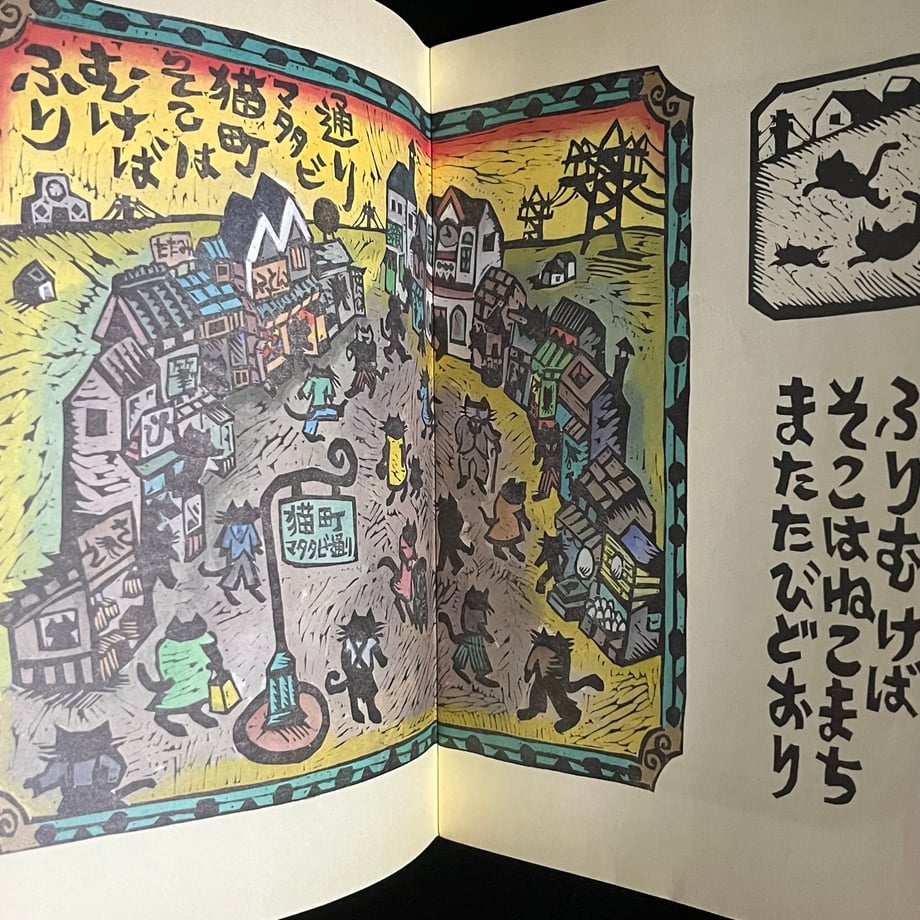 ふり
むけば
そこは
猫町
マタタビ
通り
たたみ
ふとん
筆
猫町
マタタビ通り
ふりむけば
そこはねこまち
またたびどおり